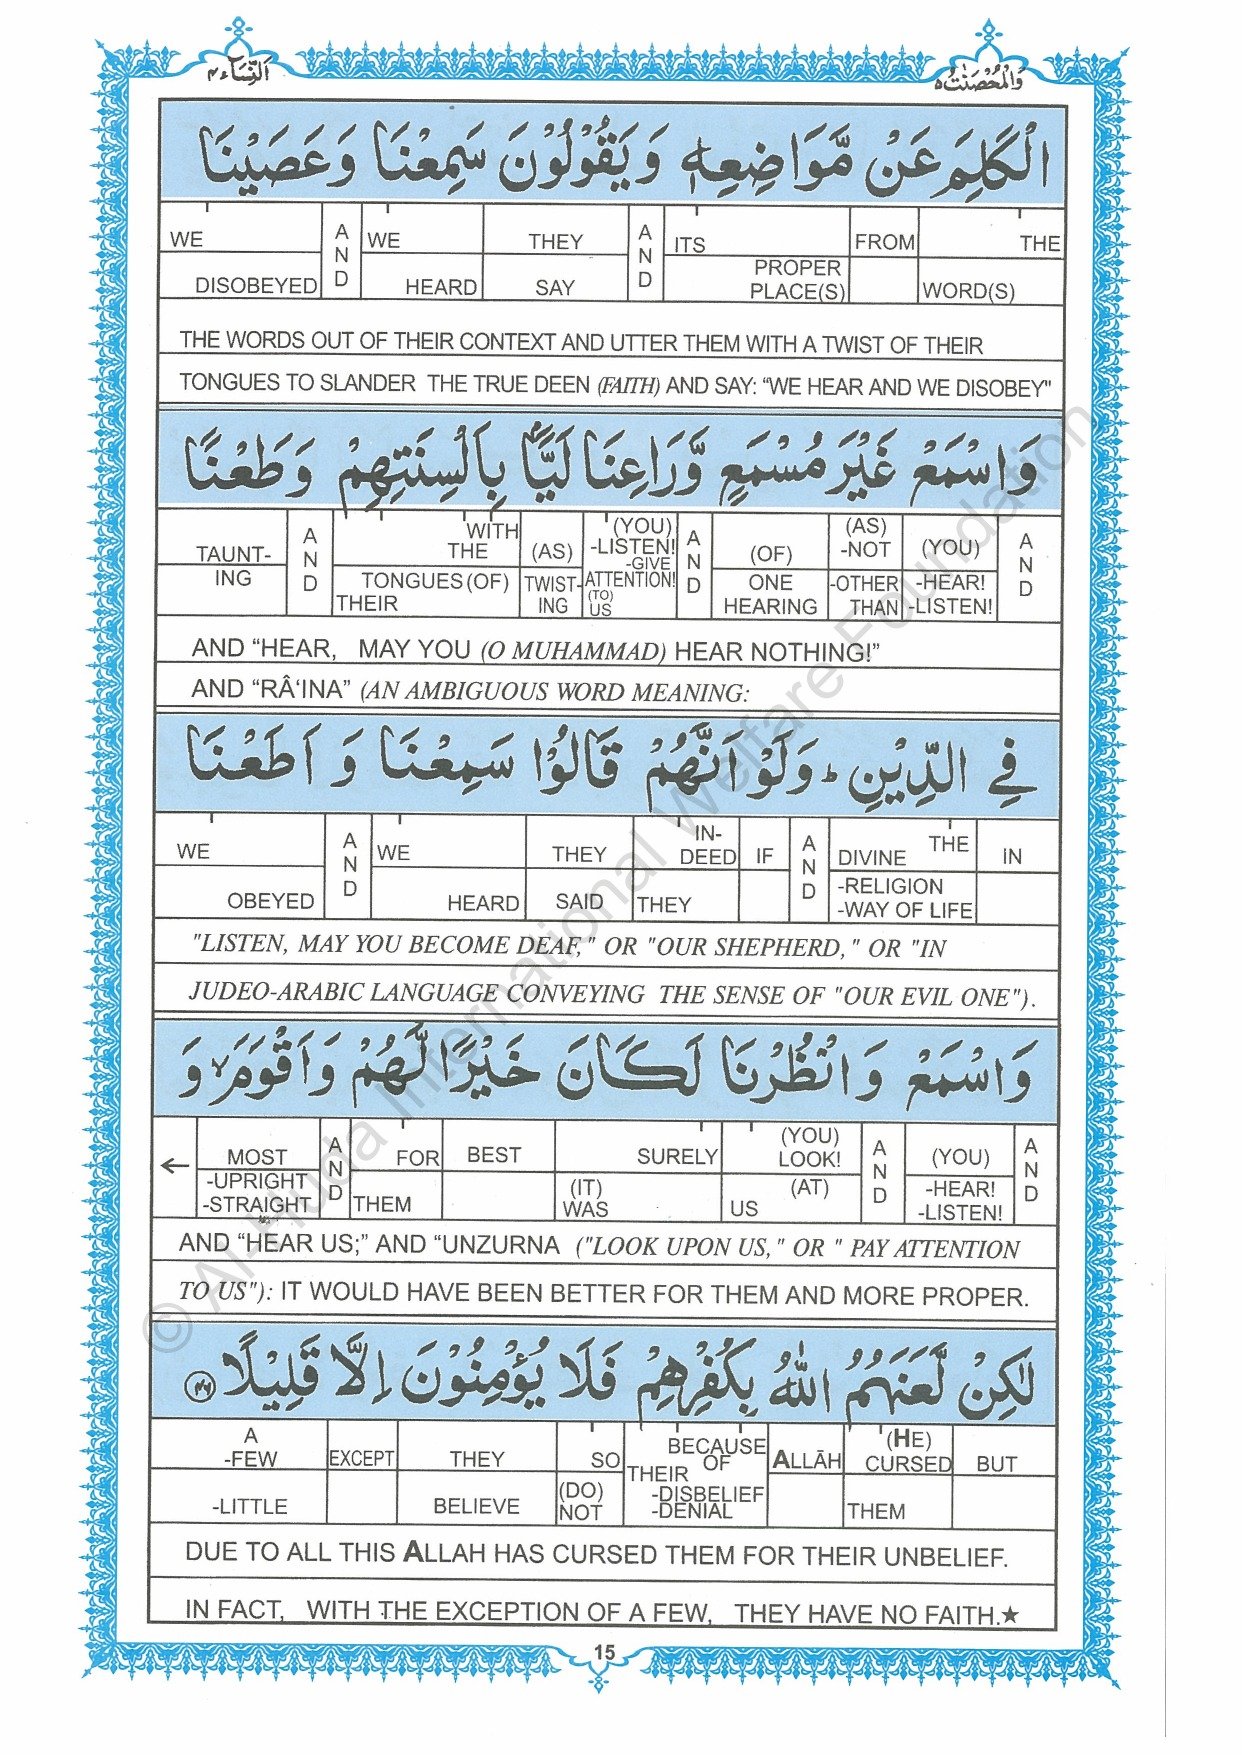 النِّسَاء ٤
وَالْمُحْصَنٰت ٥
الْكَلِمَ عَنْ مَّوَاضِعِهٖ وَيَقُوْلُوْنَ سَمِعْنَا وَعَصَيْنَا
WE | A N D | WE | THEY | A N D | ITS | FROM | THE
DISOBEYED | HEARD | SAY | PROPER PLACE(S) | WORD(S)
THE WORDS OUT OF THEIR CONTEXT AND UTTER THEM WITH A TWIST OF THEIR
TONGUES TO SLANDER THE TRUE DEEN (FAITH) AND SAY: “WE HEAR AND WE DISOBEY"
وَاسْمَعْ غَيْرَ مُسْمَعٍ وَّرَاعِنَا لَيًّۢا بِاَلْسِنَتِهِمْ وَطَعْنًا
TAUNT- | A N D | WITH THE | (AS) | (YOU) -LISTEN! -GIVE | A N D | (OF) | (AS) -NOT | (YOU) | A N D
ING | TONGUES (OF) THEIR | TWIST- ING | ATTENTION! (TO) US | ONE HEARING | -OTHER THAN | -HEAR! -LISTEN!
AND “HEAR, MAY YOU (O MUHAMMAD) HEAR NOTHING!”
AND “RÂ‘INA” (AN AMBIGUOUS WORD MEANING:
فِي الدِّيْنِ ؕ وَلَوْ اَنَّهُمْ قَالُوْا سَمِعْنَا وَ اَطَعْنَا
WE | A N D | WE | THEY | IN- DEED | IF | A N D | DIVINE THE | IN
OBEYED | HEARD | SAID | THEY | -RELIGION -WAY OF LIFE
"LISTEN, MAY YOU BECOME DEAF," OR "OUR SHEPHERD," OR "IN
JUDEO-ARABIC LANGUAGE CONVEYING THE SENSE OF "OUR EVIL ONE").
وَاسْمَعْ وَانْظُرْنَا لَكَانَ خَيْرًا لَّهُمْ وَاَقْوَمَ ۙ وَ
← | MOST | A N D | FOR | BEST | SURELY | (YOU) LOOK! | A N D | (YOU) | A N D
-UPRIGHT -STRAIGHT | THEM | (IT) WAS | (AT) US | -HEAR! -LISTEN!
AND “HEAR US;” AND “UNZURNA ("LOOK UPON US," OR " PAY ATTENTION
TO US"): IT WOULD HAVE BEEN BETTER FOR THEM AND MORE PROPER.
لٰكِنْ لَّعَنَهُمُ اللّٰهُ بِكُفْرِهِمْ فَلَا يُؤْمِنُوْنَ اِلَّا قَلِيْلًا ۴۶
A -FEW | EXCEPT | THEY | SO | BECAUSE OF | ALLĀH | (HE) CURSED | BUT
-LITTLE | BELIEVE | (DO) NOT | THEIR -DISBELIEF -DENIAL | THEM
DUE TO ALL THIS ALLAH HAS CURSED THEM FOR THEIR UNBELIEF.
IN FACT, WITH THE EXCEPTION OF A FEW, THEY HAVE NO FAITH.★
15
© Al-Huda International Welfare Foundation